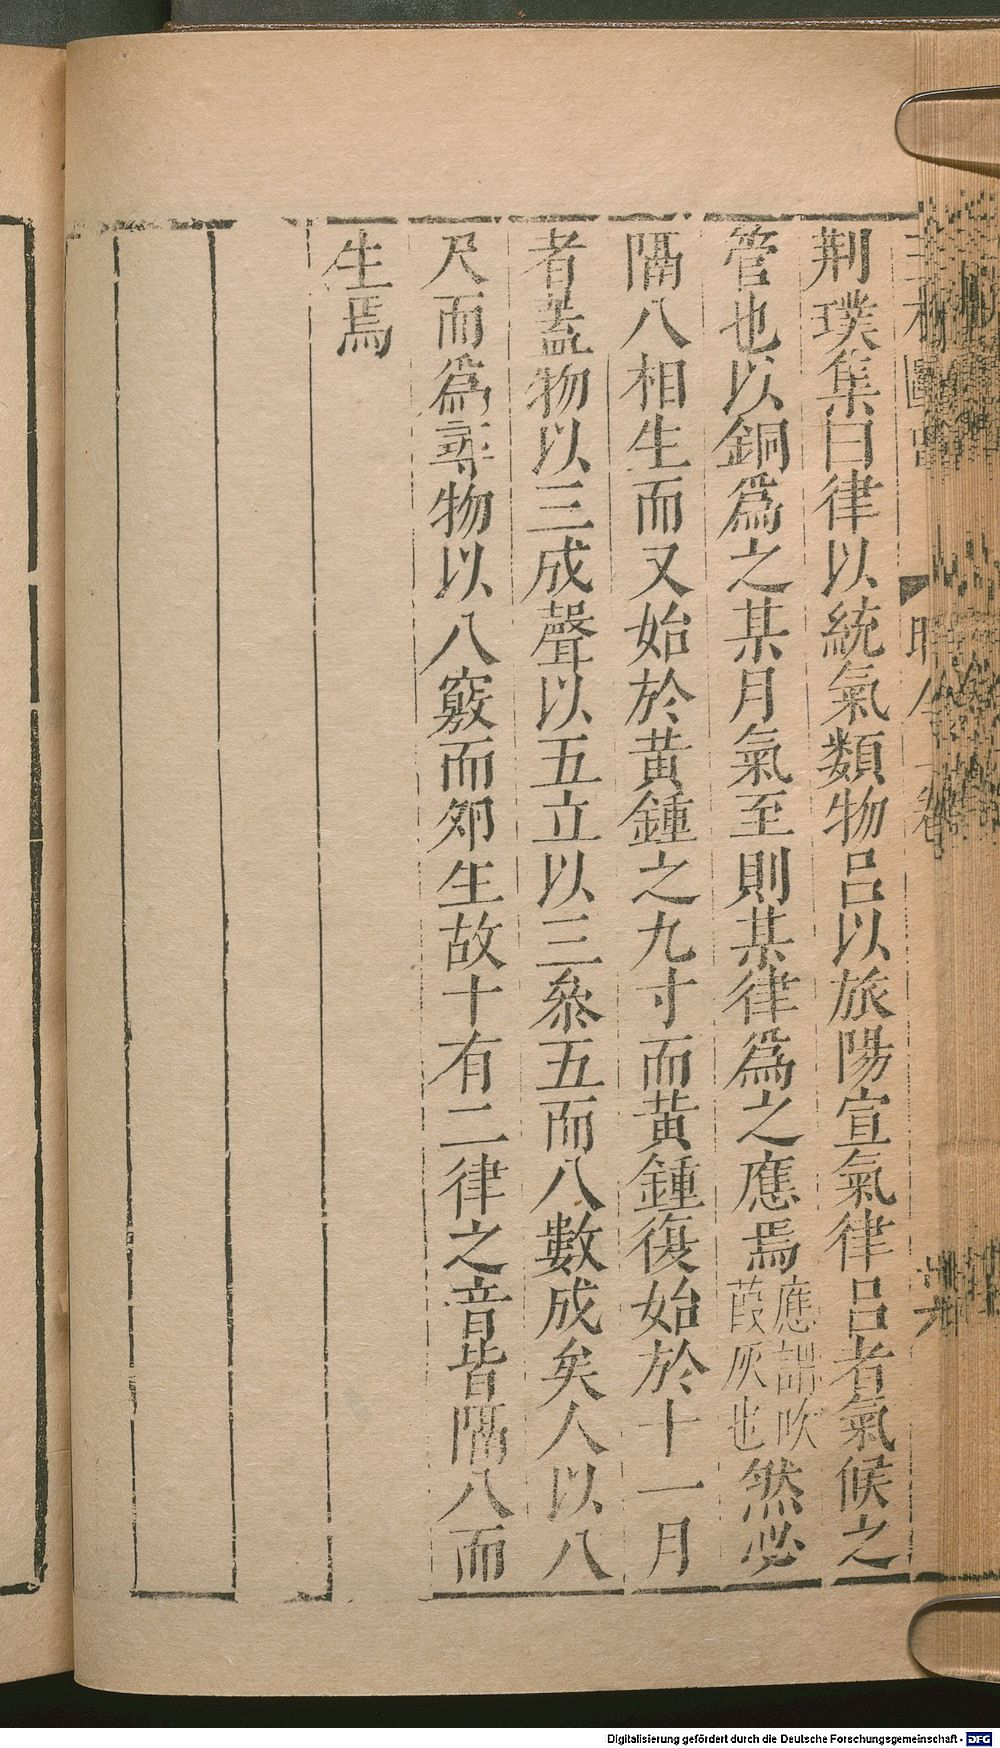 荆璞集曰律以統氣類物呂以旅陽宣氣律呂者氣候之
管也以銅爲之某月氣至則某律爲之應焉應謂吹葭灰也然必
隔八相生而又始於黃鍾之九寸而黃鍾復始於十一月
者蓋物以三成聲以五立以三叅五而八數成矣人以八
尺而爲尋物以八竅而夘生故十有二律之音皆隔八而
生焉
Digitalisierung gefördert durch die Deutsche Forschungsgemeinschaft - DFG